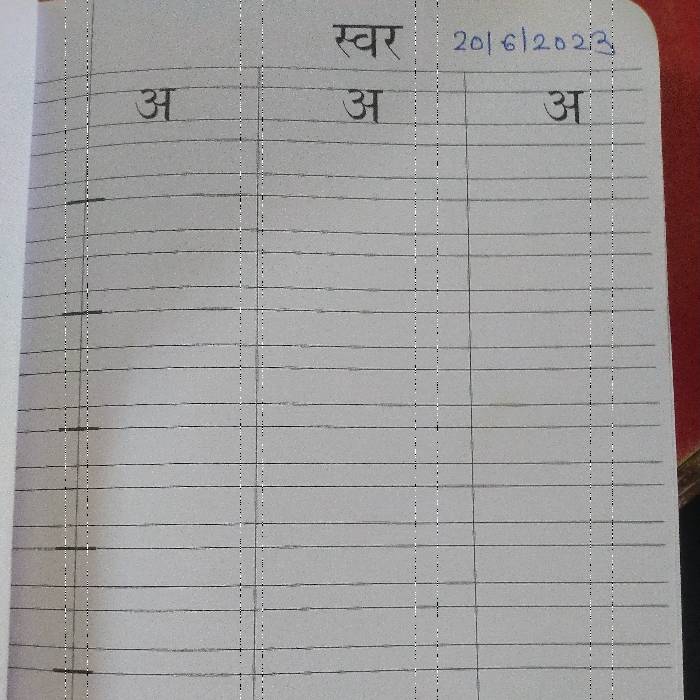 स्वर 20/6/2023
अ अ अ